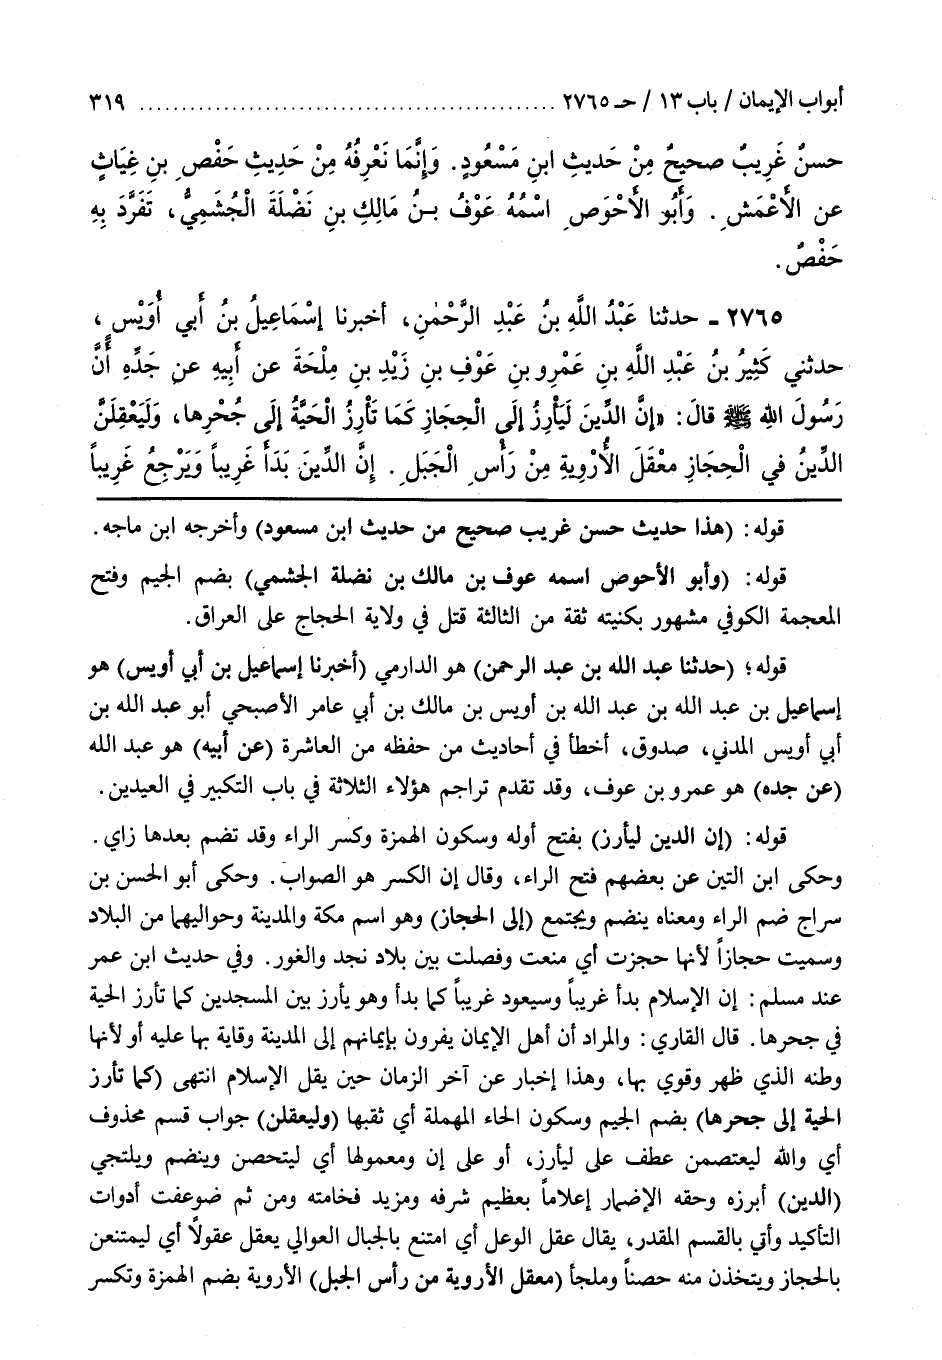 أبواب الإيمان / باب ١٣ / حـ ٢٧٦٥ ................................................ ٣١٩
حسنٌ غَرِيبٌ صحيحٌ مِنْ حَديثِ ابنِ مَسْعُودٍ. وَإِنَّمَا نَعْرِفُهُ مِنْ حَدِيثِ حَفْصِ بنِ غِيَاثٍ
عن الأَعْمَشِ. وَأَبُو الأَحْوَصِ اسْمُهُ عَوْفُ بنُ مَالِكِ بنِ نَضْلَةَ الْجُشَمِيُّ، تَفَرَّدَ بِهِ
حَفْصٌ.
٢٧٦٥ ـ حدثنا عَبْدُ اللَّهِ بنُ عَبْدِ الرَّحْمٰنِ، أخبرنا إسْمَاعِيلُ بنُ أَبي أُوَيْسٍ،
حدثني كَثِيرُ بنُ عَبْدِ اللَّهِ بنِ عَمْرِو بنِ عَوْفِ بنِ زَيْدِ بنِ مِلْحَةَ عن أَبِيهِ عن جَدِّهِ أَنَّ
رَسُولَ اللهِ ﷺ قالَ: «إنَّ الدِّينَ لَيَأْرِزُ إلَى الْحِجَازِ كَمَا تَأْرِزُ الْحَيَّةُ إلَى جُحْرِها، وَلَيَعْقِلَنَّ
الدِّينُ في الْحِجَازِ معْقَلَ الأُرْوِيةِ مِنْ رَأْسِ الْجَبَلِ. إنَّ الدِّينَ بَدَأَ غَرِيباً وَيَرْجِعُ غَرِيباً
قوله: (هذا حديث حسن غريب صحيح من حديث ابن مسعود) وأخرجه ابن ماجه.
قوله: (وأبو الأحوص اسمه عوف بن مالك بن نضلة الجشمي) بضم الجيم وفتح
المعجمة الكوفي مشهور بكنيته ثقة من الثالثة قتل في ولاية الحجاج على العراق.
قوله؛ (حدثنا عبد الله بن عبد الرحمن) هو الدارمي (أخبرنا إسماعيل بن أبي أويس) هو
إسماعيل بن عبد الله بن عبد الله بن أويس بن مالك بن أبي عامر الأصبحي أبو عبد الله بن
أبي أويس المدني، صدوق، أخطأ في أحاديث من حفظه من العاشرة (عن أبيه) هو عبد الله
(عن جده) هو عمرو بن عوف، وقد تقدم تراجم هؤلاء الثلاثة في باب التكبير في العيدين.
قوله: (إن الدين ليأرز) بفتح أوله وسكون الهمزة وكسر الراء وقد تضم بعدها زاي.
وحكى ابن التين عن بعضهم فتح الراء، وقال إن الكسر هو الصواب. وحكى أبو الحسن بن
سراج ضم الراء ومعناه ينضم ويجتمع (إلى الحجاز) وهو اسم مكة والمدينة وحواليهما من البلاد
وسميت حجازاً لأنها حجزت أي منعت وفصلت بين بلاد نجد والغور. وفي حديث ابن عمر
عند مسلم: إن الإسلام بدأ غريباً وسيعود غريباً كما بدأ وهو يأرز بين المسجدين كما تأرز الحية
في جحرها. قال القاري: والمراد أن أهل الإيمان يفرون بإيمانهم إلى المدينة وقاية بها عليه أو لأنها
وطنه الذي ظهر وقوي بها، وهذا إخبار عن آخر الزمان حين يقل الإسلام انتهى (كما تأرز
الحية إلى جحرها) بضم الجيم وسكون الحاء المهملة أي ثقبها (وليعقلن) جواب قسم محذوف
أي والله ليعتصمن عطف على ليأرز، أو على إن ومعمولها أي ليتحصن وينضم ويلتجي
(الدين) أبرزه وحقه الإضمار إعلاماً بعظيم شرفه ومزيد فخامته ومن ثم ضوعفت أدوات
التأكيد وأتي بالقسم المقدر، يقال عقل الوعل أي امتنع بالجبال العوالي يعقل عقولاً أي ليمتنعن
بالحجاز ويتخذن منه حصناً وملجأ (معقل الأروية من رأس الجبل) الأروية بضم الهمزة وتكسر